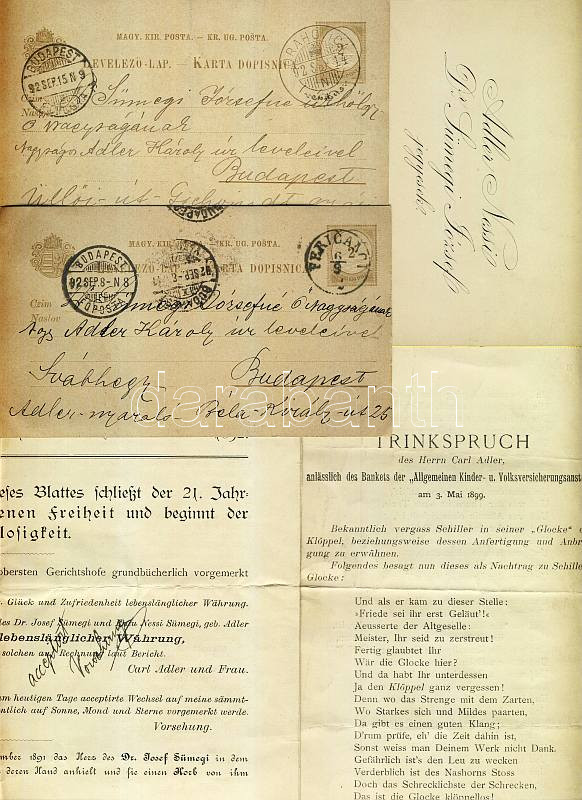 MAGY. KIR. POSTA. – KR. UG. POŠTA.
LEVELEZŐ-LAP. – KARTA DOPISNICA
BUDAPEST
92 SEP. 15. N 9
92
14
Sümegi Józsefné
Ő Nagyságának
Nagyságos Adler Károly úr leveleivel
Budapest
Üllői-út
Adler Nessi
Dr Sümegi József
jegyesek
MAGY. KIR. POSTA. – KR. UG. POŠTA.
KARTA DOPISNICA
BUDAPEST
92 SEP. 8 – N 8
FŐPOSTA
FERICANCI
Czim
Naslov
Sümegi Józsefné Ő Nagyságának
Nagys Adler Károly úr leveleivel
Svábhegy Budapest
Adler-nyaraló Béla-Király-út 25
darabanth
eses Blattes schließt der 21. Jahr-
enen Freiheit und beginnt der
losigkeit.
obersten Gerichtshofe grundbücherlich vorgemerkt
Glück und Zufriedenheit lebenslänglicher Währung.
des Dr. Josef Sümegi und Frau Nessi Sümegi, geb. Adler
lebenslänglicher Währung,
solchen auf Rechnung laut Bericht.
Carl Adler und Frau.
acceptirt
Vorsehung
m heutigen Tage acceptirte Wechsel auf meine sämmt-
ntlich auf Sonne, Mond und Sterne vorgemerkt werde.
Vorsehung.
ember 1891 das Herz des Dr. Josef Sümegi in dem
deren Hand anhielt und sie einen Korb von ihm
TRINKSPRUCH
des Herrn Carl Adler,
anlässlich des Bankets der „Allgemeinen Kinder- u. Volksversicherungsanst
am 3. Mai 1899.
Bekanntlich vergass Schiller in seiner „Glocke“ d
Klöppel, beziehungsweise dessen Anfertigung und Anbri
gung zu erwähnen.
Folgendes besagt nun dieses als Nachtrag zu Schille
Glocke:
Und als er kam zu dieser Stelle:
»Friede sei ihr erst Geläut'!«
Aeusserte der Altgeselle:
Meister, Ihr seid zu zerstreut!
Fertig glaubtet Ihr
Wär die Glocke hier?
Und da habt Ihr unterdessen
Ja den Klöppel ganz vergessen!
Denn wo das Strenge mit dem Zarten,
Wo Starkes sich und Mildes paarten,
Da gibt es einen guten Klang;
D'rum prüfe, eh' die Zeit dahin ist,
Sonst weiss man Deinem Werk nicht Dank.
Gefährlich ist's den Leu zu wecken
Verderblich ist des Nashorns Stoss
Doch das Schrecklichste der Schrecken,
Das ist die Glocke klöppellos!